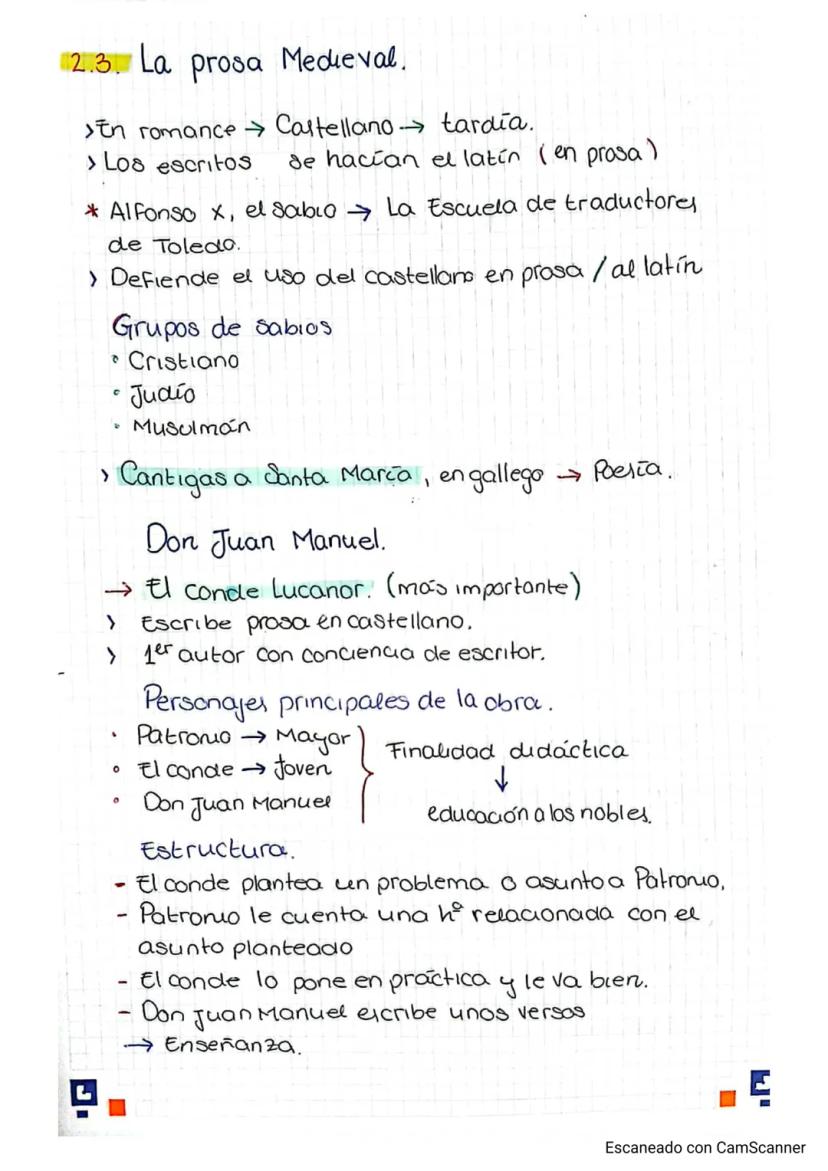 2.3. La prosa Medieval.
> En romance → Castellano → tardía.
> Los escritos se hacían el latín (en prosa)
* Alfonso X, el Sabio → La Escuela de traductores
de Toledo.
> Defiende el uso del castellano en prosa / al latín
Grupos de sabios
• Cristiano
• Judío
• Musulmán
> Cantigas a Santa María, en gallego → Poesía.
Don Juan Manuel.
→ El conde Lucanor. (más importante)
> Escribe prosa en castellano.
> 1er autor con conciencia de escritor.
Personajes principales de la obra.
• Patronio → Mayor
• El conde → Joven
• Don Juan Manuel
Finalidad didáctica
↓
educación a los nobles.
Estructura.
- El conde plantea un problema o asunto a Patronio.
- Patronio le cuenta una hº relacionada con el
asunto planteado
- El conde lo pone en práctica y le va bien.
- Don Juan Manuel escribe unos versos
→ Enseñanza.
Escaneado con CamScanner